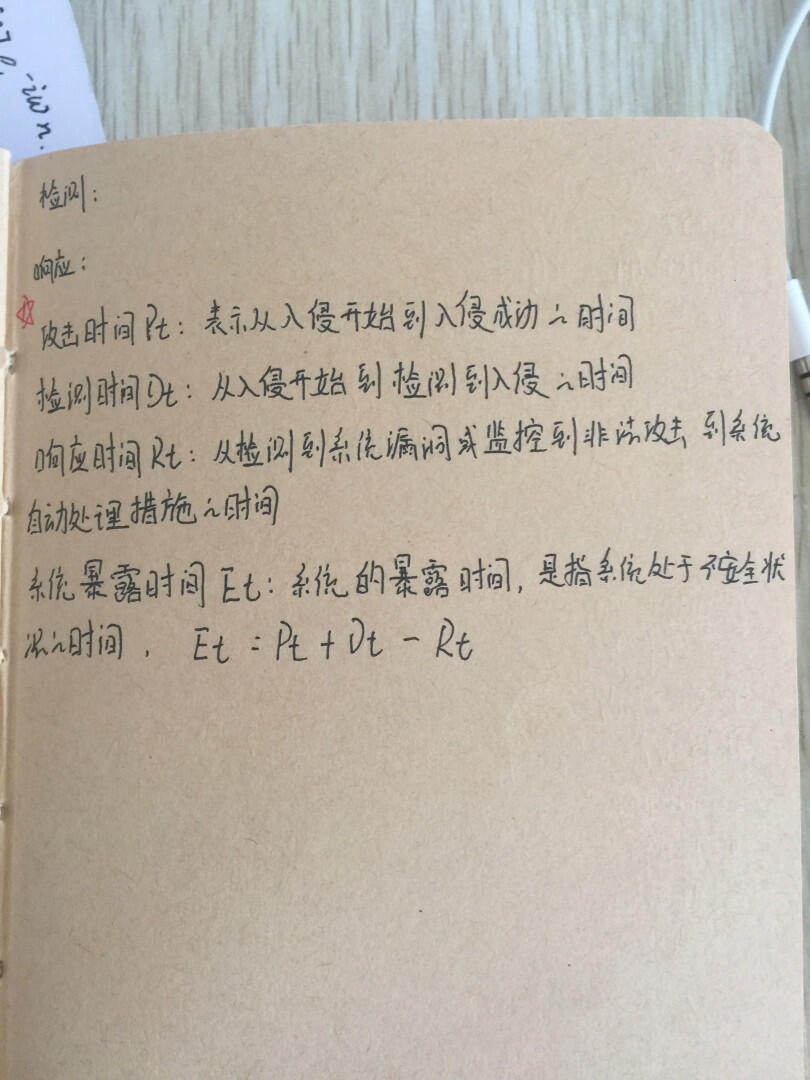 -iwn.
检测:
响应:
☆攻击时间Pt: 表示从入侵开始到入侵成功的时间
检测时间Dt: 从入侵开始到检测到入侵的时间
响应时间Rt: 从检测到系统漏洞或监控到非法攻击到系统
自动处理措施的时间
系统暴露时间Et: 系统的暴露时间, 是指系统处于不安全状
况的时间, Et = Pt + Dt - Rt